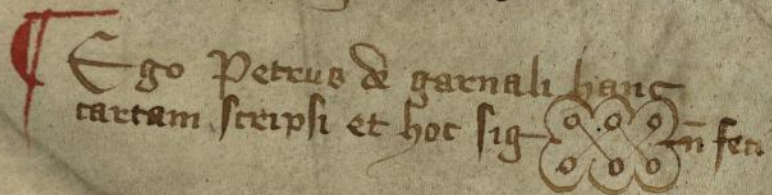 ¶ Ego Petrus de garnali hanc
cartam scripsi et hoc sig n̄ feci